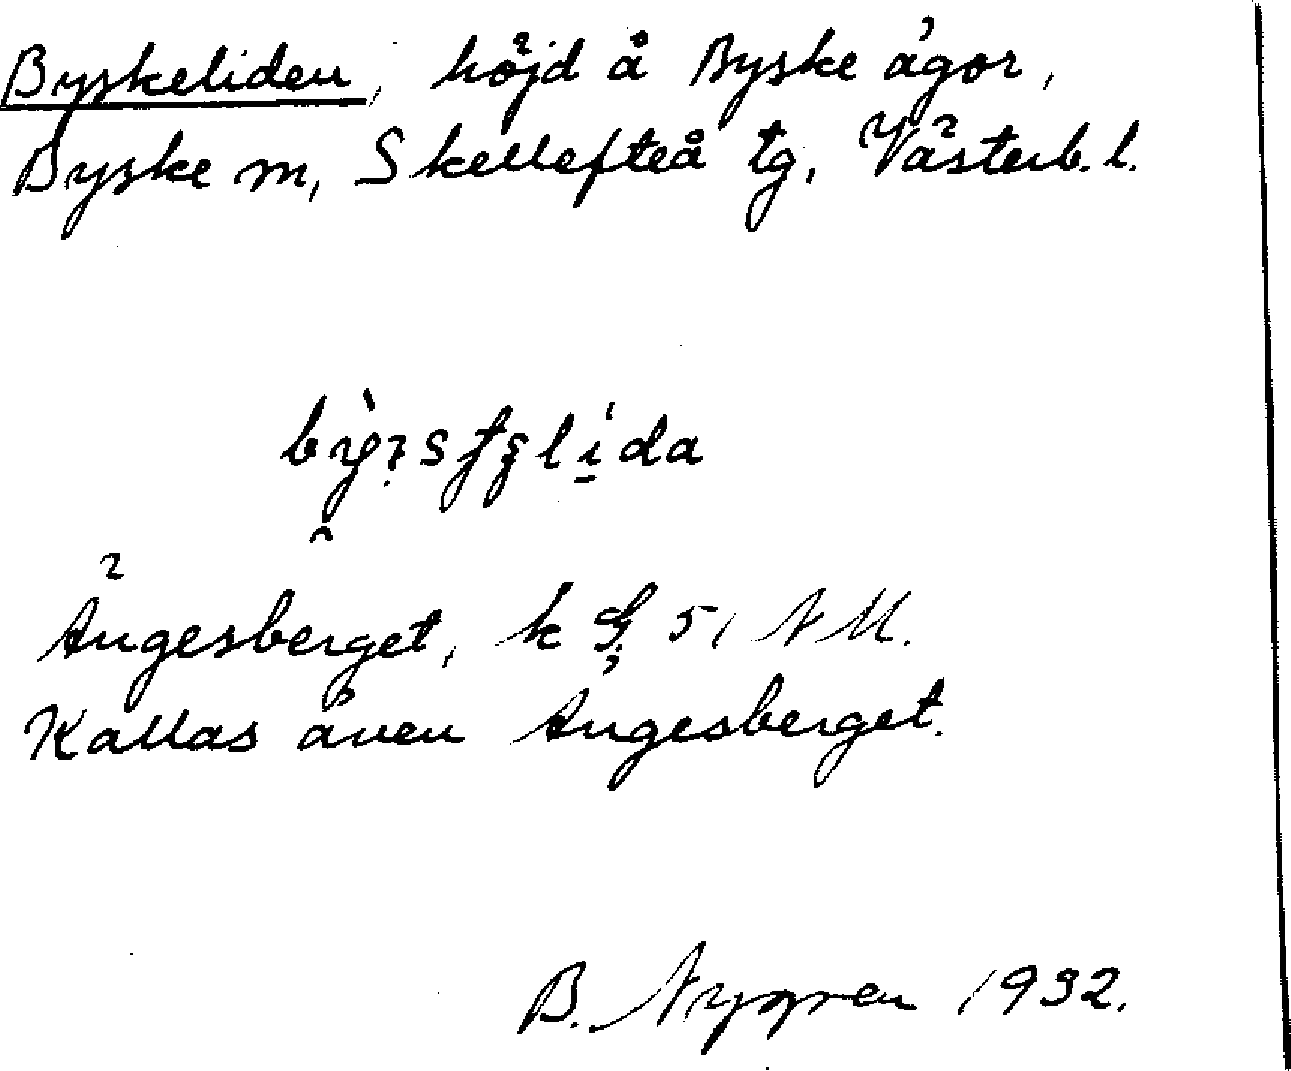 Byskeliden, höjd å Byske ägor,
Byske sn, Skellefteå tg, Västerb. l.
Ängesberget, k G. 51 NU.
Kallas även Ängesberget.
B. Nygren 1932.